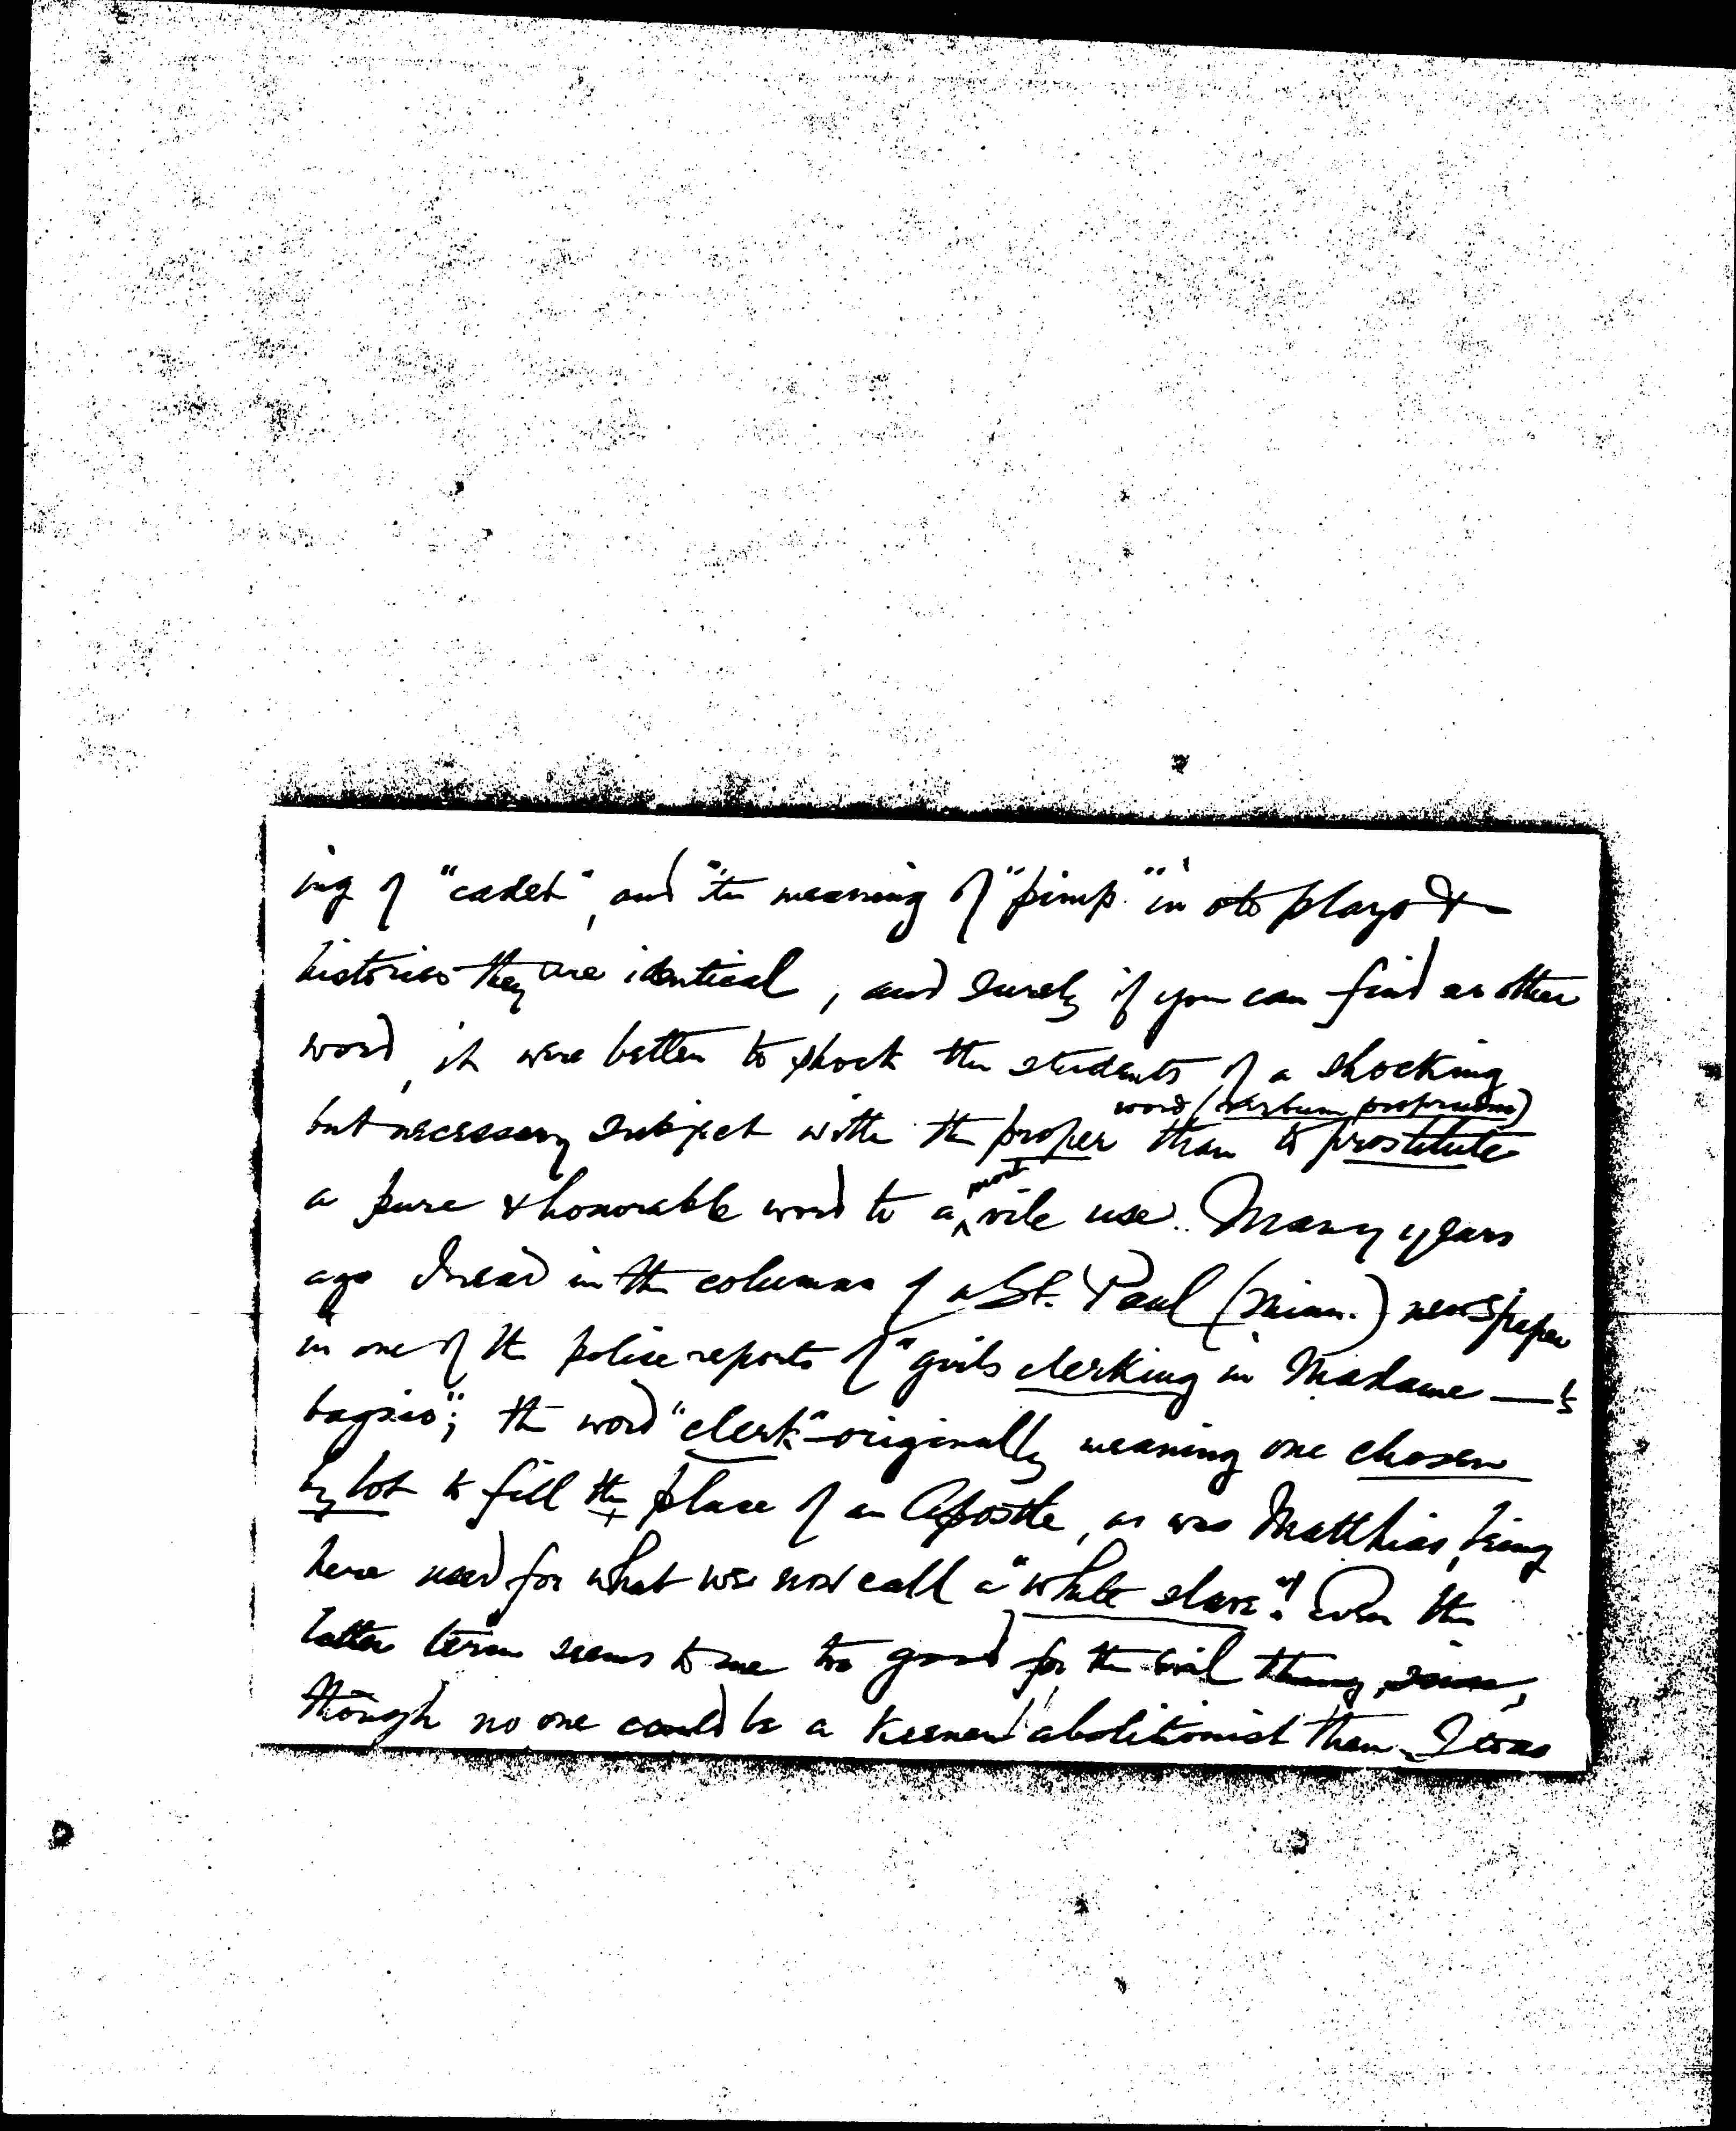 ing of "cadet", and the meaning of "pimp" in old plays &
histories they are identical, and surely if you can find another
word, it were better to shock the students of a shocking
word (verbum proprium)
but necessary subject with the proper than to prostitute
most
a pure & honorable word to a vile use. Many years
ago I read in the columns of a St. Paul (Minn.) newspaper
in one of the police reports of "girls clerking in Madame ——'s
bagnio"; the word "clerk" originally meaning one chosen
by lot to fill the place of an Apostle, as was Matthias, being
here used for what we now call a "white slave"! Even the
latter term seems to me too good for the evil thing,
though no one could be a keener abolitionist than I was